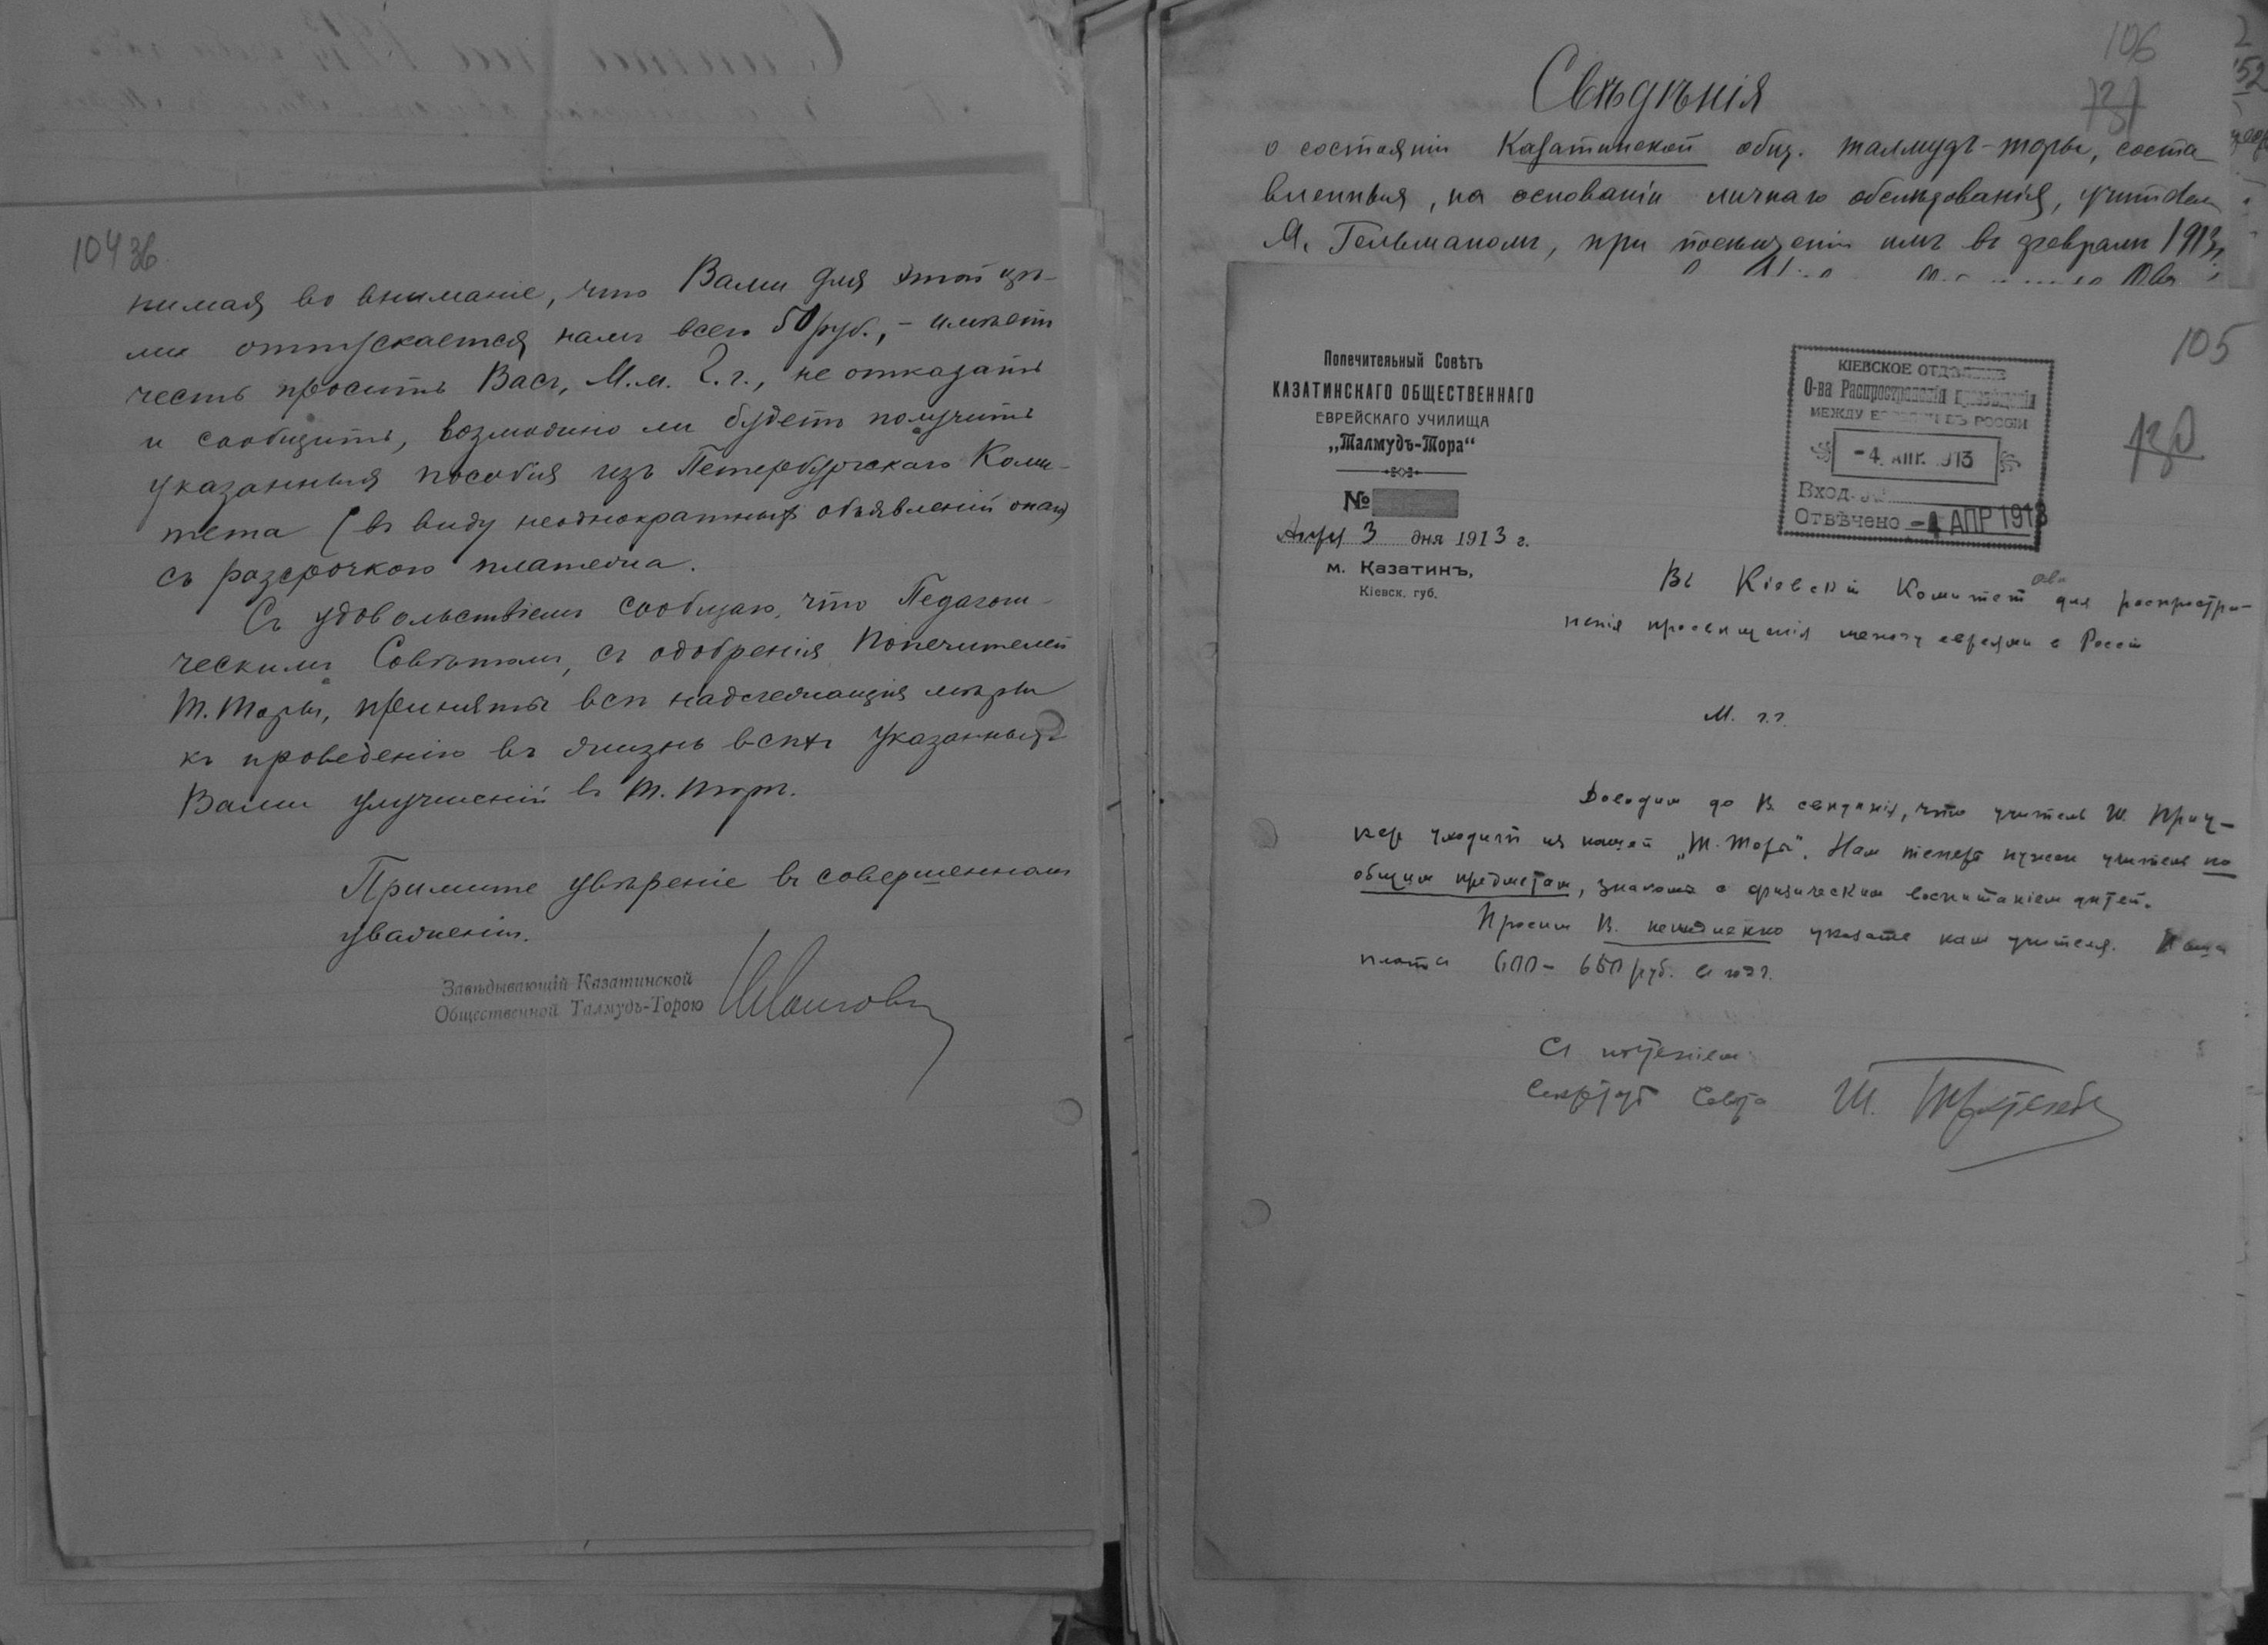 104 зв.
нимая во вниманіе, что Вами для этой цѣ-
ли отпускается намъ всего 50 руб., – имѣетъ
честь просить Васъ, М.м. Г.г., не отказать
и сообщить, возможно ли будетъ получить
указанныя пособія изъ Петербургскаго Коми-
тета (въ виду неоднократныхъ объявленій онаго)
съ разсрочкою платежа.
Съ удовольствіемъ сообщаю, что Педагоги-
ческимъ Совѣтомъ, съ одобренія Попечителей
Т. Торы, приняты всѣ надлежащія мѣры
къ проведенію въ жизнь всѣхъ указанныхъ
Вами улучшеній въ Т. Торѣ.
Примите увѣреніе въ совершенномъ
уваженіи.
Завѣдывающій Казатинской
Общественной Талмудъ-Торою
106
131
Свѣдѣнія
о состояніи Казатинской общ. талмудъ-торы, соста-
вленныя, на основаніи личнаго обслѣдованія, учителемъ
Я. Гельманомъ, при посѣщеніи имъ въ февралѣ 1913 г.
105
130
Попечительный Совѣтъ
КАЗАТИНСКАГО ОБЩЕСТВЕННАГО
ЕВРЕЙСКАГО УЧИЛИЩА
„Талмудъ-Тора“
№
Апр 3 дня 1913 г.
м. Казатинъ,
Кіевск. губ.
КІЕВСКОЕ ОТДѢЛЕНІЕ
О-ва Распространенія просвѣщенія
МЕЖДУ ЕВРЕЯМИ ВЪ РОССІИ
-4. АПР. 1913
Вход. №
Отвѣчено -4 АПР 1913
Въ Кіевскій Комитет о-ва для распростра-
ненія просвѣщенія между евреями в Россіи
М. г.г.
Доводим до В. свѣдѣнія, что учитель Ш. Приц-
кер уходит из нашей „Т. Торы“. Нам теперь нужен учитель по
общим предметам, знакомый с физическим воспитаніем дѣтей.
Просим В. немедленно указать нам учителя. Наша
плата 600 – 650 руб. в год.
С почтеніем
Секретарь Совѣта Ш.